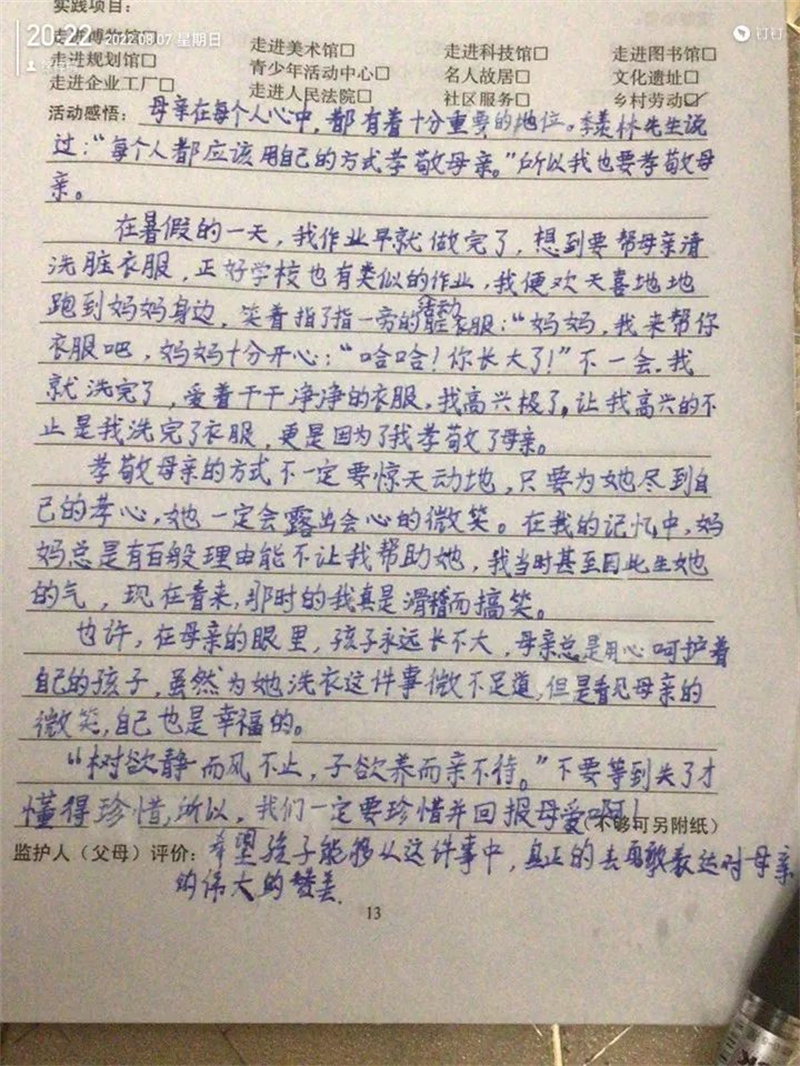 实践项目：
20:22 2022.08.07 星期日
钉钉
走进博物馆□ 走进美术馆□ 走进科技馆□ 走进图书馆□
走进规划馆□ 青少年活动中心□ 名人故居□ 文化遗址□
走进企业工厂□ 走进人民法院□ 社区服务□ 乡村劳动☑
活动感悟：母亲在每个人心中，都有着十分重要的地位。季羡林先生说
过：“每个人都应该用自己的方式孝敬母亲。”所以我也要孝敬母
亲。
在暑假的一天，我作业早就做完了，想到要帮母亲清
洗脏衣服，正好学校也有类似的作业，我便欢天喜地地
跑到妈妈身边，笑着指了指一旁的脏衣服：“妈妈，我来帮你
衣服吧，妈妈十分开心：“哈哈！你长大了！”不一会，我
就洗完了，爱着干干净净的衣服，我高兴极了，让我高兴的不
止是我洗完了衣服，更是因为了我孝敬了母亲。
孝敬母亲的方式不一定要惊天动地，只要为她尽到自
己的孝心，她一定会露出会心的微笑。在我的记忆中，妈
妈总是有百般理由能不让我帮助她，我当时甚至因此生她
的气，现在看来，那时的我真是滑稽而搞笑。
也许，在母亲的眼里，孩子永远长不大，母亲总是用心呵护着
自己的孩子，虽然为她洗衣这件事微不足道，但是看见母亲的
微笑，自己也是幸福的。
“树欲静而风不止，子欲养而亲不待。”不要等到失了才
懂得珍惜，所以，我们一定要珍惜并回报母爱啊！
（不够可另附纸）
监护人（父母）评价：希望孩子能够从这件事中，真正的去勇敢表达对母亲
的伟大的赞美.
13